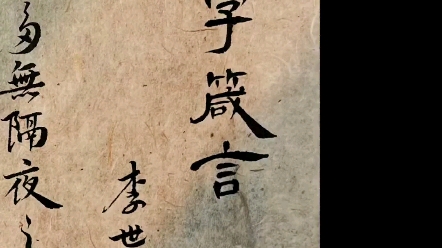 字箴言
李世
無隔夜之